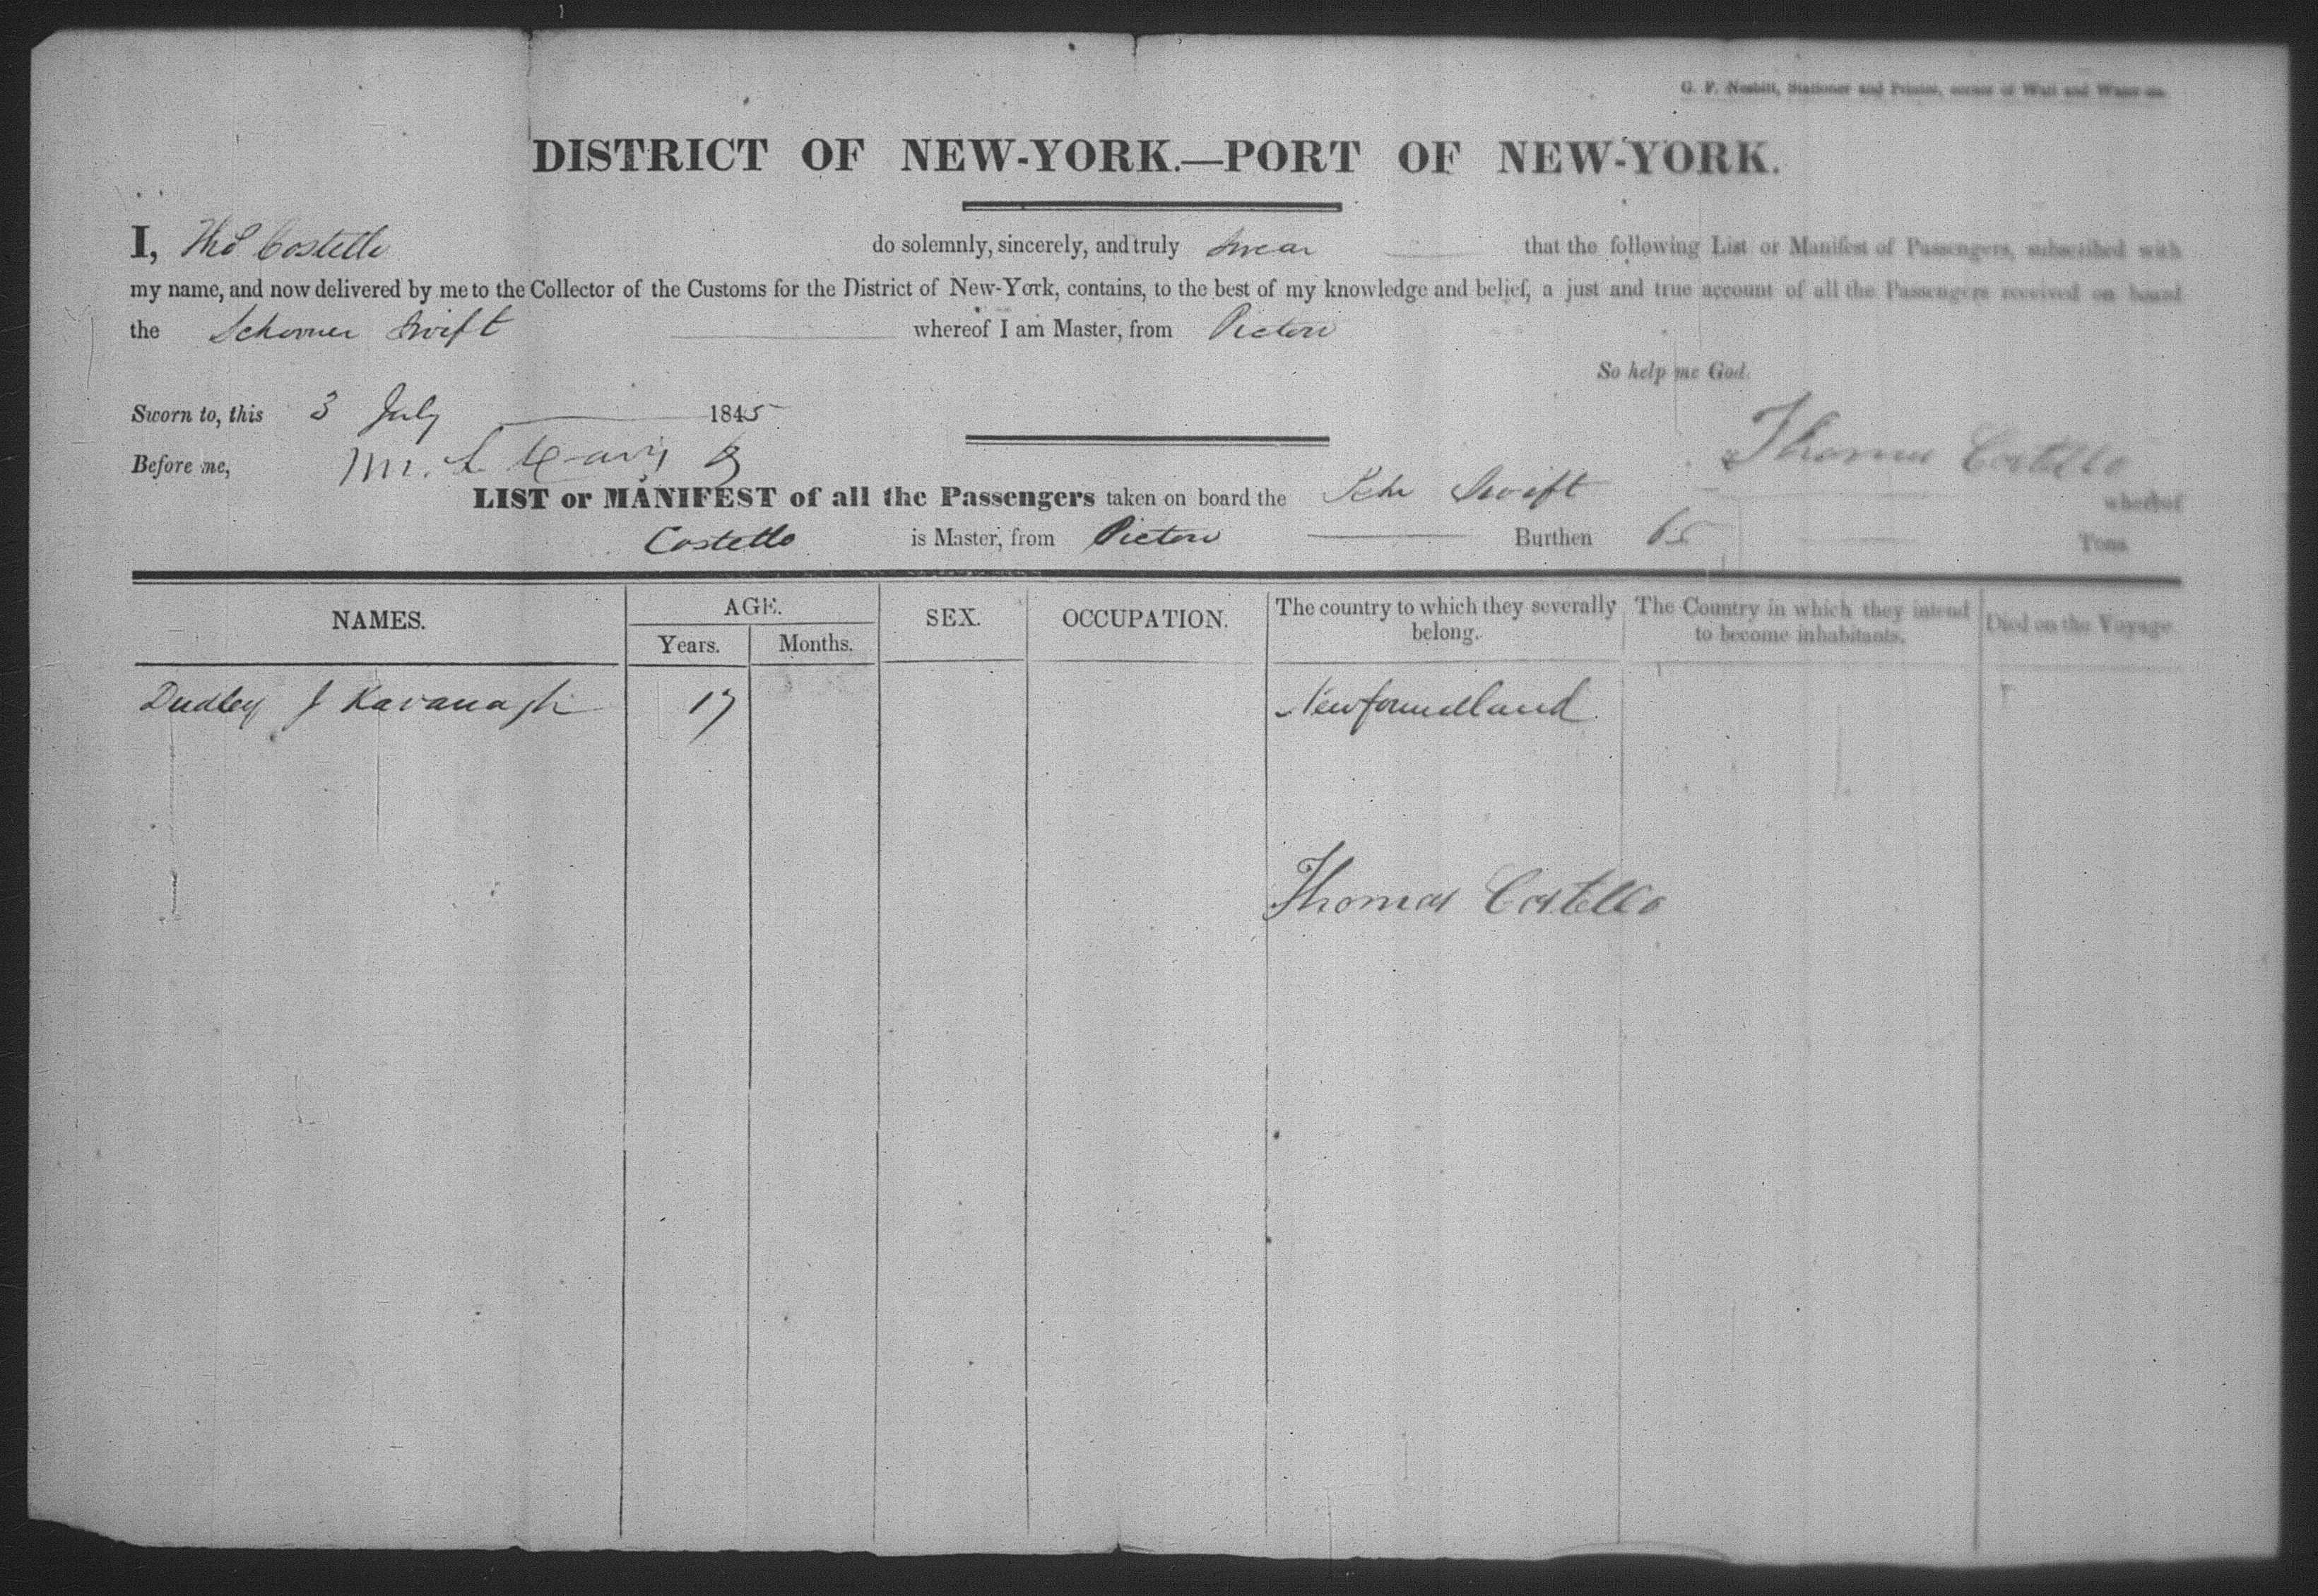 G. F. Nesbitt, Stationer and Printer, corner of Wall and Water sts.
DISTRICT OF NEW-YORK.—PORT OF NEW-YORK.
I, Thos Costello do solemnly, sincerely, and truly swear that the following List or Manifest of Passengers, subscribed with
my name, and now delivered by me to the Collector of the Customs for the District of New-York, contains, to the best of my knowledge and belief, a just and true account of all the Passengers received on board
the Schooner Swift whereof I am Master, from Pictou
So help me God.
Sworn to, this 3 July 1845
Thomas Costello
Before me,
LIST or MANIFEST of all the Passengers taken on board the Schr Swift whereof
Costello is Master, from Pictou Burthen 65 Tons
NAMES. AGE. SEX. OCCUPATION. The country to which they severally belong. The Country in which they intend to become inhabitants. Died on the Voyage
Years. Months.
Dudley J Kavanagh 17 Newfoundland
Thomas Costello